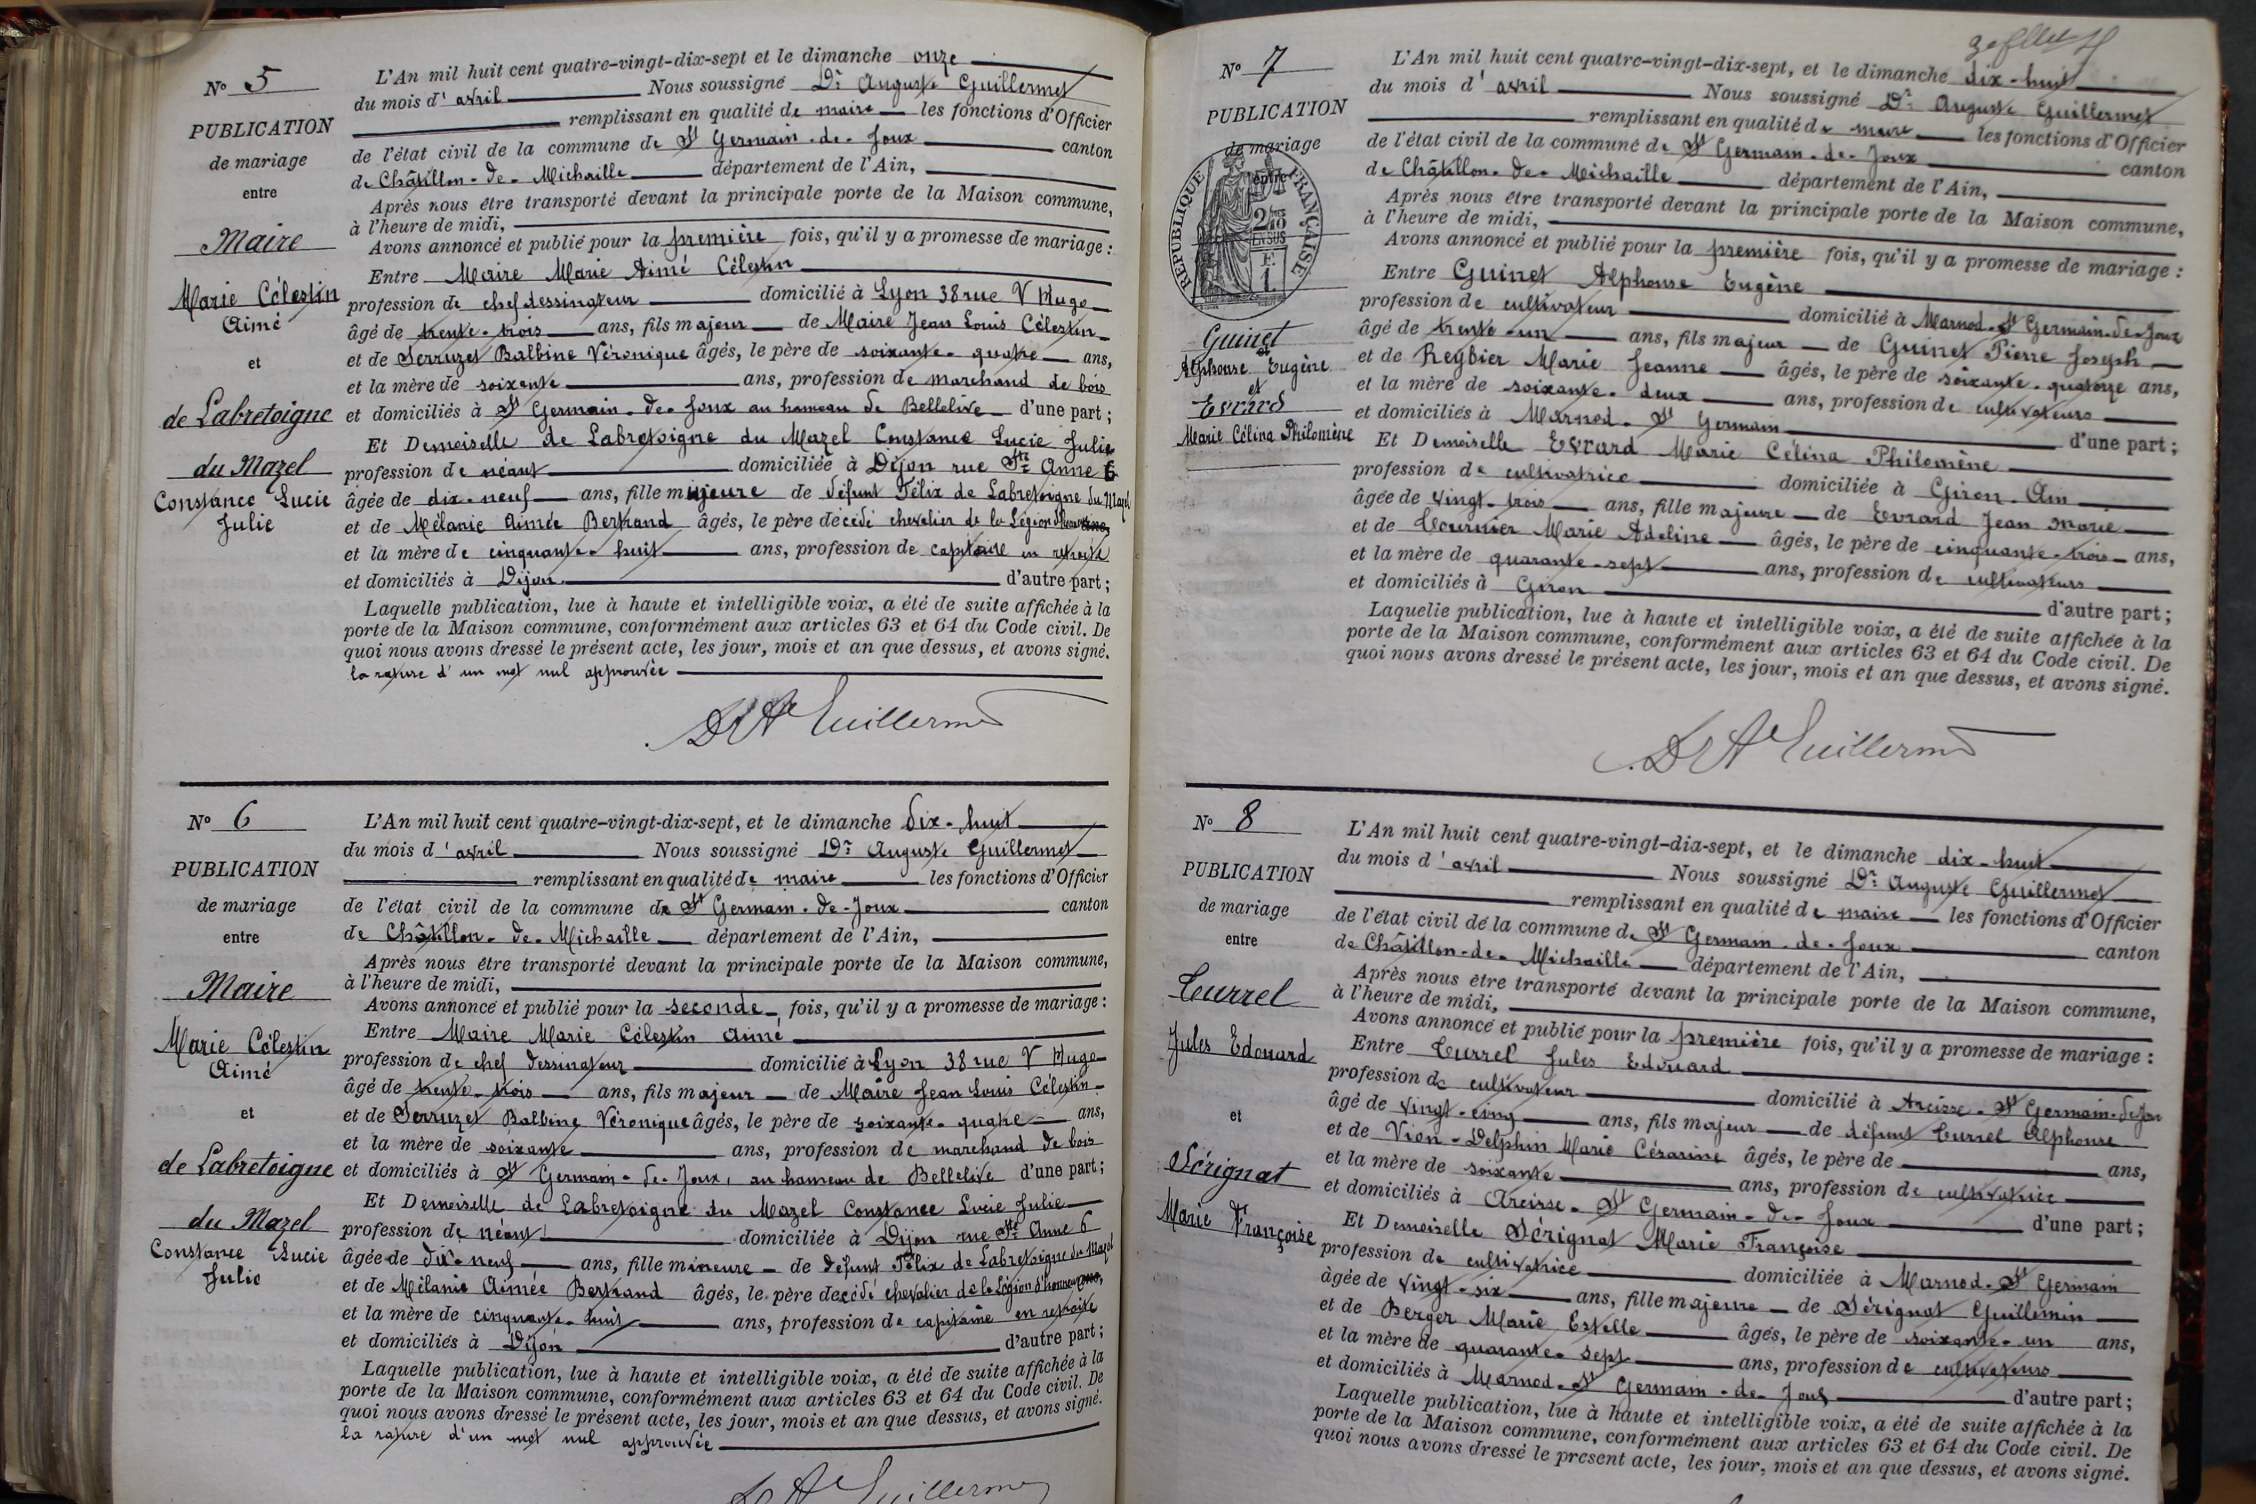 N° 5
PUBLICATION
de mariage
entre
Maire
Marie Célestin
Aimé
et
de Labretoigne
du Mazel
Constance Lucie
Julie
L'An mil huit cent quatre-vingt-dix-sept et le dimanche onze
du mois d'avril Nous soussigné Dr Auguste Guillermet
remplissant en qualité de maire les fonctions d'Officier
de l'état civil de la commune de St Germain-de-Joux canton
de Châtillon-de-Michaille département de l'Ain,
Après nous être transporté devant la principale porte de la Maison commune,
à l'heure de midi,
Avons annoncé et publié pour la première fois, qu'il y a promesse de mariage :
Entre Maire Marie Aimé Célestin
profession de chef dessinateur domicilié à Lyon 38 rue V Hugo
âgé de trente-trois ans, fils majeur de Maire Jean Louis Célestin
et de Serruzet Balbine Véronique âgés, le père de soixante-quatre ans,
et la mère de soixante ans, profession de marchand de bois
et domiciliés à St Germain-de-Joux au hameau de Bellelive d'une part ;
Et Demoiselle de Labretoigne du Mazel Constance Lucie Julie
profession de néant domiciliée à Dijon rue Ste Anne 6
âgée de dix-neuf ans, fille mineure de défunt Félix de Labretoigne du Mazel
et de Mélanie Aimée Bertrand âgés, le père décédé chevalier de la Légion d'honneur ans,
et la mère de cinquante-huit ans, profession de capitaine en retraite
et domiciliés à Dijon d'autre part ;
Laquelle publication, lue à haute et intelligible voix, a été de suite affichée à la
porte de la Maison commune, conformément aux articles 63 et 64 du Code civil. De
quoi nous avons dressé le présent acte, les jour, mois et an que dessus, et avons signé.
la rature d'un mot nul approuvée
Dr Ate Guillermet
N° 6
PUBLICATION
de mariage
entre
Maire
Marie Célestin
Aimé
et
de Labretoigne
du Mazel
Constance Lucie
Julie
L'An mil huit cent quatre-vingt-dix-sept, et le dimanche dix-huit
du mois d'avril Nous soussigné Dr Auguste Guillermet
remplissant en qualité de maire les fonctions d'Officier
de l'état civil de la commune de St Germain-de-Joux canton
de Châtillon-de-Michaille département de l'Ain,
Après nous être transporté devant la principale porte de la Maison commune,
à l'heure de midi,
Avons annoncé et publié pour la seconde fois, qu'il y a promesse de mariage :
Entre Maire Marie Célestin Aimé
profession de chef dessinateur domicilié à Lyon 38 rue V Hugo
âgé de trente-trois ans, fils majeur de Maire Jean Louis Célestin
et de Serruzet Balbine Véronique âgés, le père de soixante-quatre ans,
et la mère de soixante ans, profession de marchand de bois
et domiciliés à St Germain-de-Joux, au hameau de Bellelive d'une part ;
Et Demoiselle de Labretoigne du Mazel Constance Lucie Julie
profession de néant domiciliée à Dijon rue Ste Anne 6
âgée de dix-neuf ans, fille mineure de défunt Félix de Labretoigne du Mazel
et de Mélanie Aimée Bertrand âgés, le père décédé chevalier de la Légion d'honneur ans,
et la mère de cinquante-huit ans, profession de capitaine en retraite
et domiciliés à Dijon d'autre part ;
Laquelle publication, lue à haute et intelligible voix, a été de suite affichée à la
porte de la Maison commune, conformément aux articles 63 et 64 du Code civil. De
quoi nous avons dressé le présent acte, les jour, mois et an que dessus, et avons signé.
la rature d'un mot nul approuvée
Dr Ate Guillermet
N° 7
PUBLICATION
de mariage
entre
RÉPUBLIQUE FRANÇAISE
2/10
EN SUS
F.
1.
Guinet
Alphonse Eugène
et
Evrard
Marie Célina Philomène
L'An mil huit cent quatre-vingt-dix-sept, et le dimanche dix-huit
du mois d'avril Nous soussigné Dr Auguste Guillermet
remplissant en qualité de maire les fonctions d'Officier
de l'état civil de la commune de St Germain-de-Joux canton
de Châtillon-de-Michaille département de l'Ain,
Après nous être transporté devant la principale porte de la Maison commune,
à l'heure de midi,
Avons annoncé et publié pour la première fois, qu'il y a promesse de mariage :
Entre Guinet Alphonse Eugène
profession de cultivateur domicilié à Marnod-St Germain-de-Joux
âgé de trente-un ans, fils majeur de Guinet Pierre Joseph
et de Reybier Marie Jeanne âgés, le père de soixante-quatorze ans,
et la mère de soixante-deux ans, profession de cultivateurs
et domiciliés à Marnod-St Germain d'une part ;
Et Demoiselle Evrard Marie Célina Philomène
profession de cultivatrice domiciliée à Giron-Ain
âgée de vingt-trois ans, fille majeure de Evrard Jean Marie
et de Tournier Marie Adeline âgés, le père de cinquante-trois ans,
et la mère de quarante-sept ans, profession de cultivateurs
et domiciliés à Giron d'autre part ;
Laquelle publication, lue à haute et intelligible voix, a été de suite affichée à la
porte de la Maison commune, conformément aux articles 63 et 64 du Code civil. De
quoi nous avons dressé le présent acte, les jour, mois et an que dessus, et avons signé.
Dr Ate Guillermet
N° 8
PUBLICATION
de mariage
entre
Turrel
Jules Edouard
et
Sérignat
Marie Françoise
L'An mil huit cent quatre-vingt-dix-sept, et le dimanche dix-huit
du mois d'avril Nous soussigné Dr Auguste Guillermet
remplissant en qualité de maire les fonctions d'Officier
de l'état civil de la commune de St Germain-de-Joux canton
de Châtillon-de-Michaille département de l'Ain,
Après nous être transporté devant la principale porte de la Maison commune,
à l'heure de midi,
Avons annoncé et publié pour la première fois, qu'il y a promesse de mariage :
Entre Turrel Jules Edouard
profession de cultivateur domicilié à Arcisse-St Germain-de-Joux
âgé de vingt-cinq ans, fils majeur de défunt Turrel Alphonse
et de Vion-Delphin Marie Césarine âgés, le père de ans,
et la mère de soixante ans, profession de cultivatrice
et domiciliés à Arcisse-St Germain-de-Joux d'une part ;
Et Demoiselle Sérignat Marie Françoise
profession de cultivatrice domiciliée à Marnod-St Germain
âgée de vingt-six ans, fille majeure de Sérignat Guillemin
et de Berger Marie Estelle âgés, le père de soixante-un ans,
et la mère de quarante-sept ans, profession de cultivateurs
et domiciliés à Marnod-St Germain-de-Joux d'autre part ;
Laquelle publication, lue à haute et intelligible voix, a été de suite affichée à la
porte de la Maison commune, conformément aux articles 63 et 64 du Code civil. De
quoi nous avons dressé le présent acte, les jour, mois et an que dessus, et avons signé.